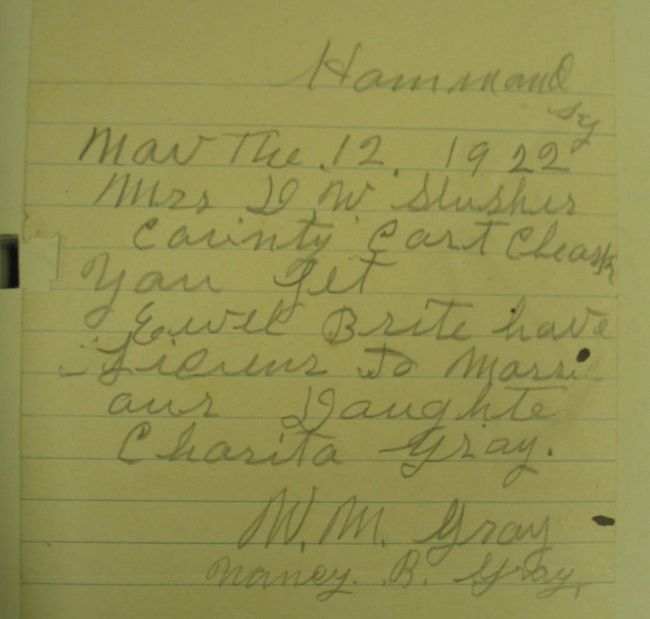 Hammond
Ky
Nov The. 12. 1922
Mrs D W Slusher
County Cort Cleark
You let
Ewel Brite have
Licuns to Marri
our Daughte
Charita Gray.
W. M. Gray
Nancy. B. Gray.